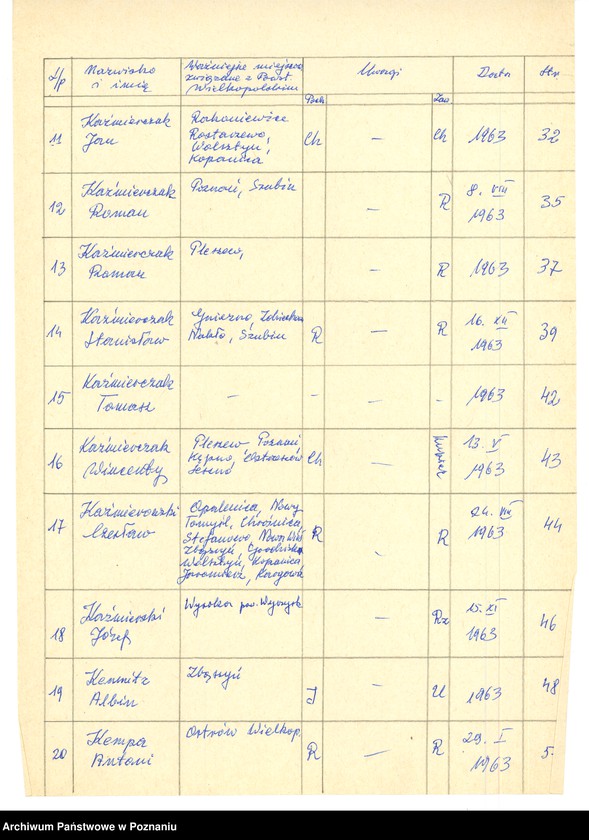 L/p Nazwisko i imię Ważniejsze miejsca związane z Powst. Wielkopolskim Uwagi Data Str.
Poch. Zaw.
11 Kaźmierczak Jan Rakoniewice Rostarzewo, Wolsztyn, Kopanica Ch — Ch 1963 32
12 Kaźmierczak Roman Poznań, Szubin — R 8. VIII 1963 35
13 Kaźmierczak Roman Pleszew, — R 1963 37
14 Kaźmierczak Stanisław Gniezno, Nakło, Szubin R — R 16. XII 1963 39
15 Kaźmierczak Tomasz — - — - 1963 42
16 Kaźmierczak Wincenty Pleszew Poznań Kępno, Ostrzeszów Ch — 13. V 1963 43
17 Kaźmierowski Czesław Opalenica, Nowy Tomyśl, Chrośnica, Stefanowo, Nowa Wieś Zbąszyń, Wolsztyn, Kopanica Jaromierz, Kargowa R - R 24. VIII 1963 44
18 Kaźmierski Józef Wysoka pow. Wyrzysk — Rz 15. XI 1963 46
19 Kemnitz Albin Zbąszyń J — U 1963 48
20 Kempa Antoni Ostrów Wielkop. R — R 29. I 1963 5.
Archiwum Państwowe w Poznaniu